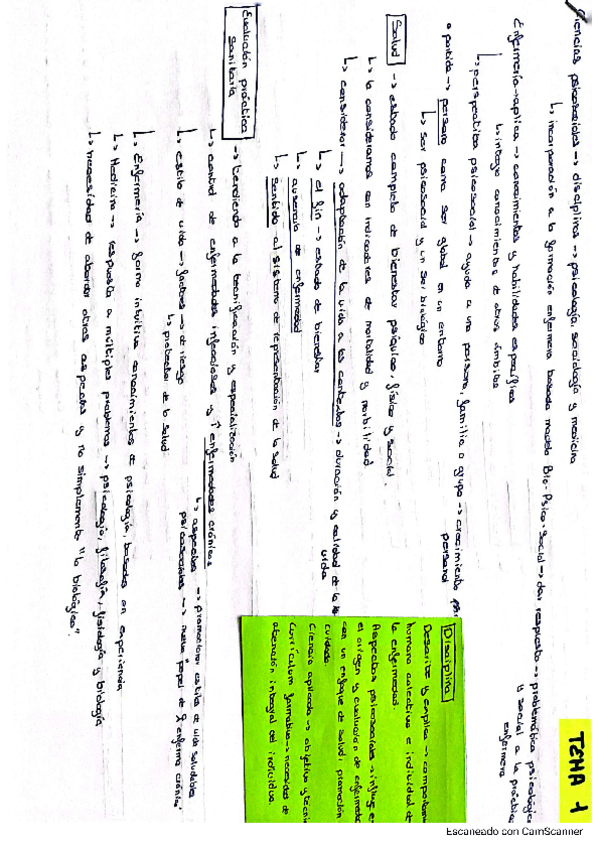 TEMA 1
Ciencias psicosociales → disciplina → psicología, sociología y medicina
↳ incorporación a la formación enfermera basada modelo Bio-Psico-Social → dar respuesta → problemática psicológica
y social a la práctica
enfermera
Enfermería → aplica → conocimientos y habilidades específicas
↳ integra conocimientos de otros ámbitos
↳ perspectiva psicosocial → ayuda a una persona, familia o grupo → crecimiento
personal
o partida → persona como ser global en un entorno
↳ ser psicosocial y un ser biológico
Salud → estado completo de bienestar psíquico, físico y social.
↳ la consideramos con indicadores de mortalidad y morbilidad
↳ considerar → adaptación de la vida a los contextos → duración y calidad de la
vida
↳ el fin → estado de bienestar
↳ ausencia de enfermedad
↳ sentido al sistema de representación de la salud
Evaluación práctica
sanitaria → tendiendo a la tecnificación y especialización
↳ control de enfermedades infecciosas y ↑ enfermedades crónicas
↳ aspectos → promotores estilo de vida saludable
psicosociales → nuevo papel de enfermo crónico
↳ estilo de vida → factores → de riesgo
↳ protector de la salud
↳ Enfermería → forma intuitiva conocimientos de psicología, basados en experiencia
↳ Medicina → respuesta a múltiples problemas → psicología, filosofía, fisiología y biología
↳ necesidad de abordar otros aspectos y no simplemente "lo biológico".
Disciplina
Describe y explica →
humano colectivo e individual
la enfermedad.
Aspectos psicosociales →
el origen y evaluación de
con un enfoque de salud, promoción
cuidado.
Ciencia aplicada → objetivo y
Currículum formativo → necesidad de
atención integral del individuo.
Escaneado con CamScanner